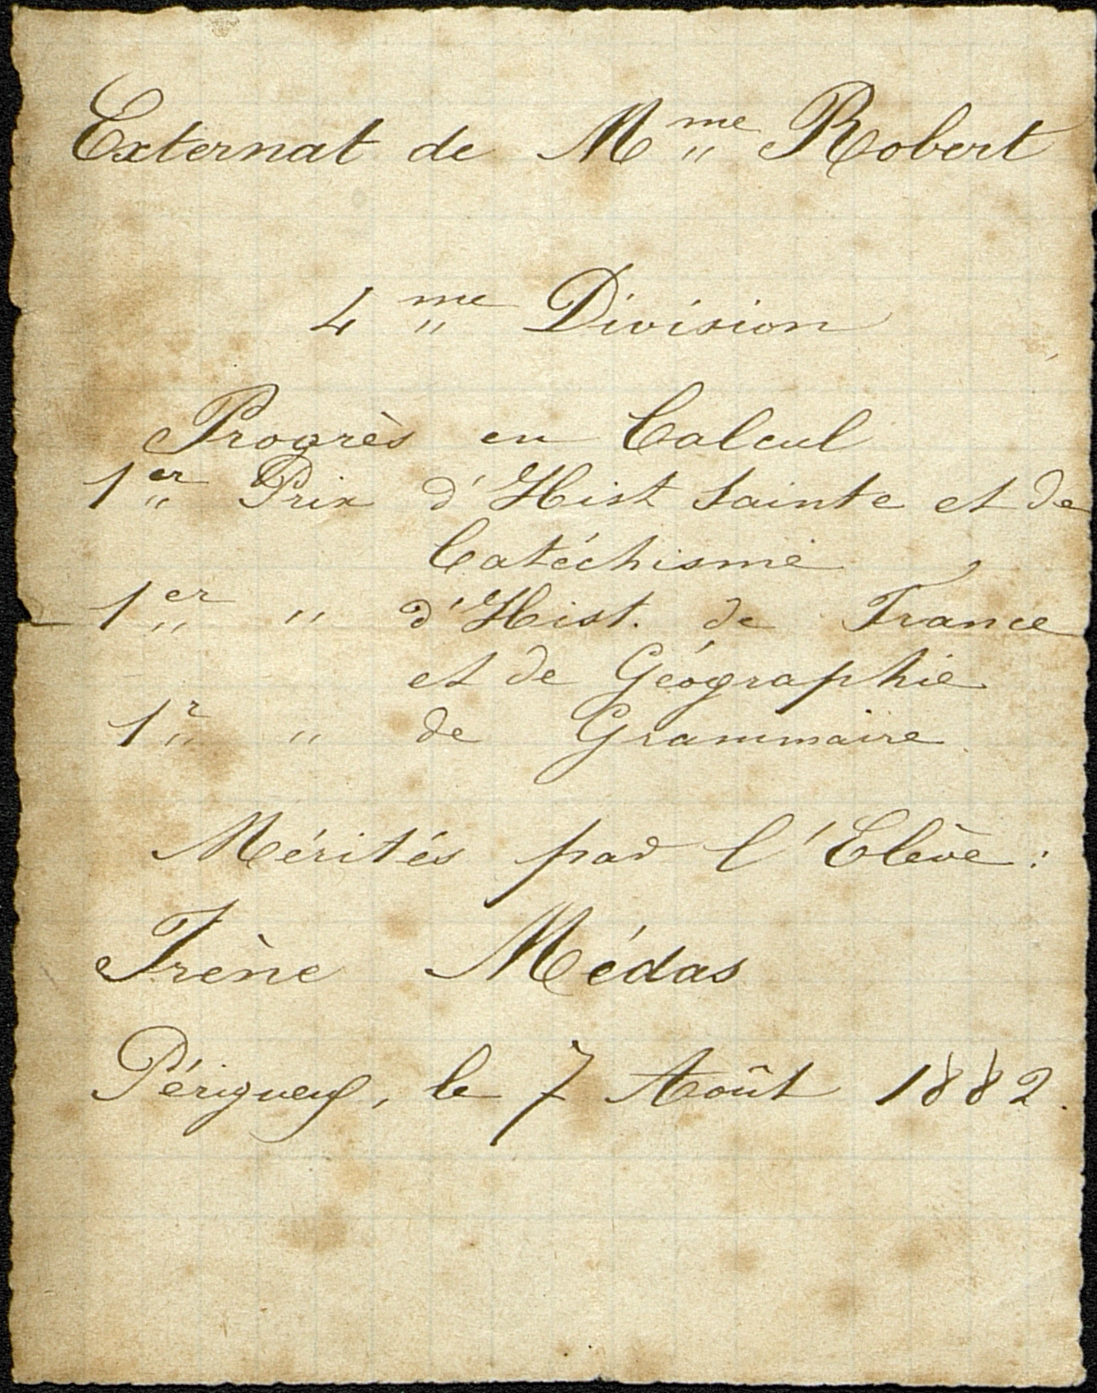 Externat de Mme Robert
4me Division
Progrès en Calcul
1er Prix d'Hist Sainte et de
Catéchisme
1er " d'Hist. de France
et de Géographie
1r " de Grammaire
Mérités par l'Elève :
Irène Médas
Périgueux, le 7 Août 1882.